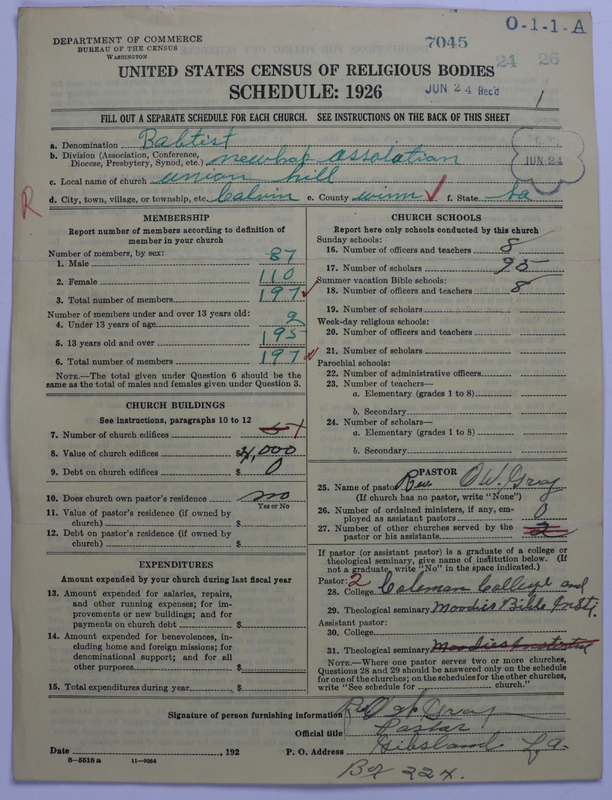 O-1-1-A
DEPARTMENT OF COMMERCE
BUREAU OF THE CENSUS
WASHINGTON
7045
24 26
UNITED STATES CENSUS OF RELIGIOUS BODIES
SCHEDULE: 1926
JUN 24 Rec'd
1
FILL OUT A SEPARATE SCHEDULE FOR EACH CHURCH. SEE INSTRUCTIONS ON THE BACK OF THIS SHEET
a. Denomination Babtist
b. Division (Association, Conference, Diocese, Presbytery, Synod, etc.) newhap assolation
JUN 24
c. Local name of church union hill
R
d. City, town, village, or township, etc. Calvin e. County winn f. State La
MEMBERSHIP
Report number of members according to definition of
member in your church
Number of members, by sex:
1. Male 87
2. Female 110
3. Total number of members 197
Number of members under and over 13 years old:
4. Under 13 years of age 2
5. 13 years old and over 195
6. Total number of members 197
NOTE.—The total given under Question 6 should be
same as the total of males and females given under Question 3.
CHURCH BUILDINGS
See instructions, paragraphs 10 to 12
7. Number of church edifices 1
8. Value of church edifices $4,000
9. Debt on church edifices $ 0
10. Does church own pastor's residence no
Yes or No
11. Value of pastor's residence (if owned by
church) $
12. Debt on pastor's residence (if owned by
church) $
EXPENDITURES
Amount expended by your church during last fiscal year
13. Amount expended for salaries, repairs,
and other running expenses; for im-
provements or new buildings; and for
payments on church debt $
14. Amount expended for benevolences, in-
cluding home and foreign missions; for
denominational support; and for all
other purposes $
15. Total expenditures during year $
CHURCH SCHOOLS
Report here only schools conducted by this church
Sunday schools:
16. Number of officers and teachers 8
17. Number of scholars 95
Summer vacation Bible schools:
18. Number of officers and teachers 8
19. Number of scholars
Week-day religious schools:
20. Number of officers and teachers
21. Number of scholars
Parochial schools:
22. Number of administrative officers
23. Number of teachers—
a. Elementary (grades 1 to 8)
b. Secondary
24. Number of scholars—
a. Elementary (grades 1 to 8)
b. Secondary
PASTOR
25. Name of pastor Rev. O W. Gray
(If church has no pastor, write "None")
26. Number of ordained ministers, if any, em-
ployed as assistant pastors 0
27. Number of other churches served by the
pastor or his assistants 2
If pastor (or assistant pastor) is a graduate of a college or
theological seminary, give name of institution below. (If
not a graduate, write "No" in the space indicated.)
Pastor: 2
28. College Coleman College and
29. Theological seminary Moodies Bible Insti.
Assistant pastor:
30. College
31. Theological seminary
NOTE.—Where one pastor serves two or more churches,
Questions 28 and 29 should be answered only on the schedule
for one of the churches; on the schedules for the other churches,
write "See schedule for church."
Signature of person furnishing information Rev O W Gray
Official title Pastor
Date , 192 P. O. Address Gibsland La.
8—5518 a 11—9054
Bx 224.